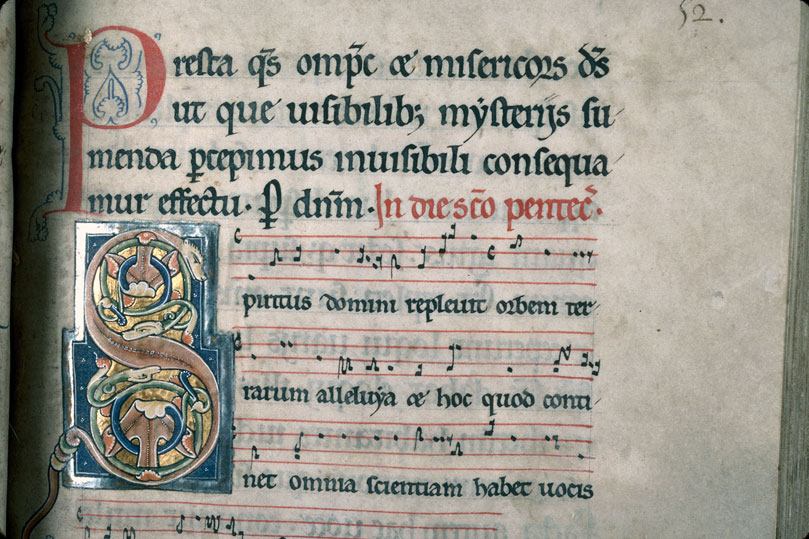 52.
Presta q̃s omp̃c ⁊ misericors d̃s
ut que uisibilib; mysterijs su
menda ꝑcepimus inuisibili consequa
mur effectu. P̱ dñm. In die sc̃o pentec̃.
Spiritus domini repleuit orbem ter
rarum alleluya ⁊ hoc quod conti
net omnia scientiam habet uocis